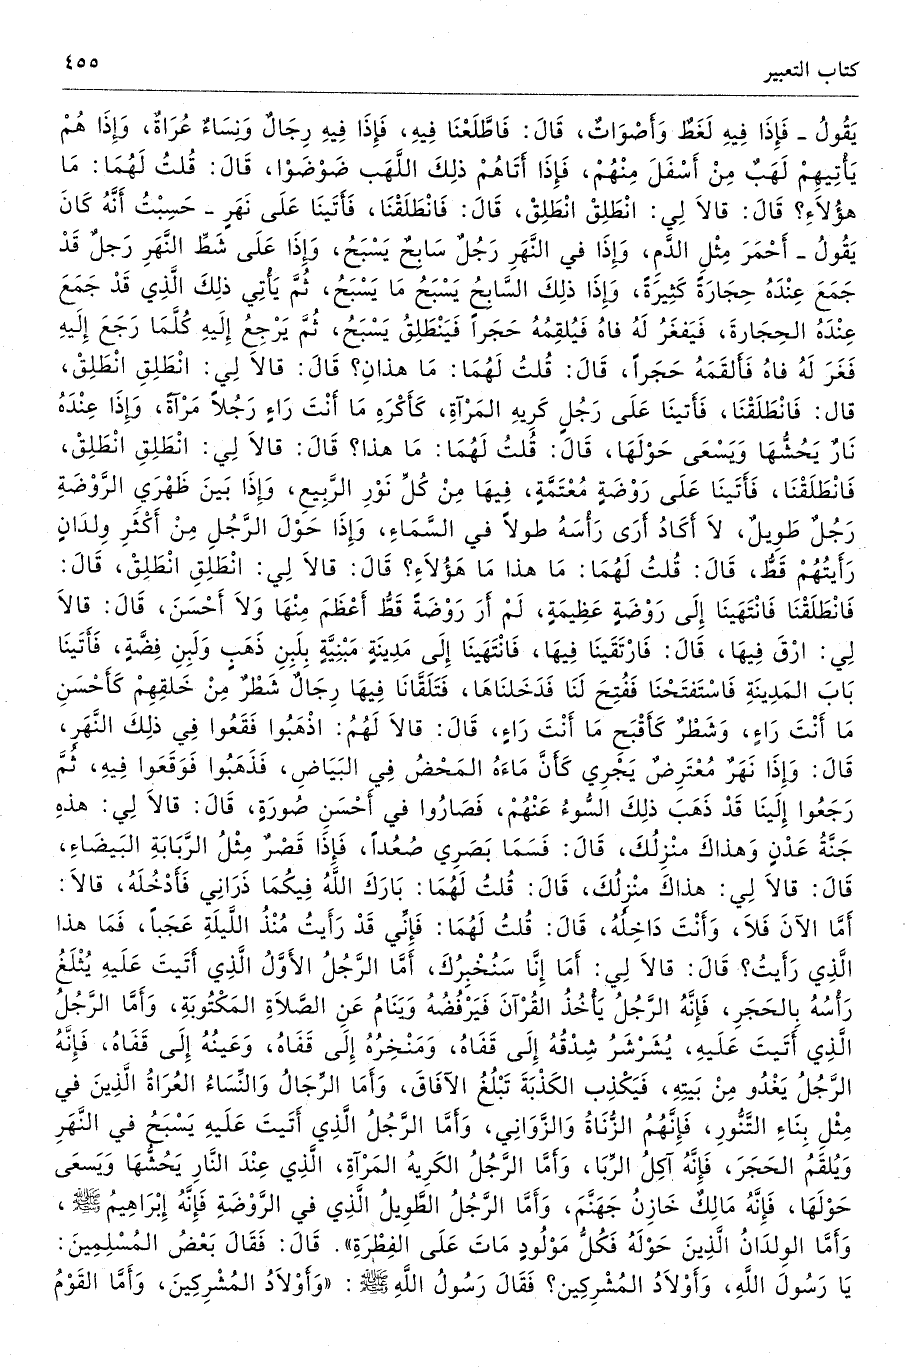 كتاب التعبير
٤٥٥
يَقُولُ ـ فَإِذَا فِيهِ لَغَطٌ وَأَصْوَاتٌ، قَالَ: فَاطَّلَعْنَا فِيهِ، فَإِذَا فِيهِ رِجَالٌ وَنِسَاءٌ عُرَاةٌ، وَإِذَا هُمْ
يَأْتِيهِمْ لَهَبٌ مِنْ أَسْفَلَ مِنْهُمْ، فَإِذَا أَتَاهُمْ ذلِكَ اللَّهَب ضَوْضَوْا، قَالَ: قُلتُ لَهُمَا: مَا
هؤُلاَءِ؟ قَالَ: قالاَ لِي: انْطَلِقْ انْطَلِقْ، قَالَ: فَانْطَلَقْنَا، فَأَتَينَا عَلَى نَهَرٍ ـ حَسِبْتُ أَنَّهُ كانَ
يَقُولُ ـ أَحْمَرَ مِثْلِ الدَّمِ، وَإِذَا في النَّهَرِ رَجُلٌ سَابِحٌ يَسْبَحُ، وَإِذَا عَلَى شَطِّ النَّهَرِ رَجلٌ قَدْ
جَمَعَ عِنْدَهُ حِجَارَةً كَثِيرَةً، وَإِذَا ذلِكَ السَّابِحُ يَسْبَحُ مَا يَسْبَحُ، ثُمَّ يَأْتِي ذلِكَ الَّذِي قَدْ جَمَعَ
عِنْدَهُ الحِجَارَةَ، فَيَفغَرُ لَهُ فاهُ فَيُلقِمُهُ حَجَراً فَيَنْطَلِقُ يَسْبَحُ، ثُمَّ يَرْجِعُ إِلَيهِ كُلَّمَا رَجَعَ إِلَيهِ
فَغَرَ لَهُ فاهُ فَأَلقَمَهُ حَجَراً، قَالَ: قُلتُ لَهُمَا: مَا هذانِ؟ قَالَ: قالاَ لِي: انْطَلِقِ انْطَلِقْ،
قال: فَانْطَلَقْنَا، فَأَتَينَا عَلَى رَجُلٍ كَرِيهِ المَرْآةِ، كَأَكْرَهِ مَا أَنْتَ رَاءٍ رَجُلاً مَرْآةً، وَإِذَا عِنْدَهُ
نَارٌ يَحُشُّهَا وَيَسْعَى حَوْلَهَا، قَالَ: قُلتُ لَهُمَا: مَا هذا؟ قَالَ: قالاَ لِي: انْطَلِقِ انْطَلِقْ،
فَانْطَلَقْنَا، فَأَتَينَا عَلَى رَوْضَةٍ مُعْتَمَّةٍ، فِيهَا مِنْ كُلِّ نَوْرِ الرَّبِيعِ، وَإِذَا بَينَ ظَهْرَيِ الرَّوْضَةِ
رَجُلٌ طَوِيلٌ، لاَ أَكَادُ أَرَى رَأْسَهُ طولاً في السَّمَاءِ، وَإِذَا حَوْلَ الرَّجُلِ مِنْ أَكْثَرِ وِلدَانٍ
رَأَيتُهُمْ قَطُّ، قَالَ: قُلتُ لَهُمَا: مَا هذا مَا هَؤُلاَءِ؟ قَالَ: قالاَ لِي: انْطَلِقِ انْطَلِقْ، قَالَ:
فَانْطَلَقْنَا فَانْتَهَينَا إِلَى رَوْضَةٍ عَظِيمَةٍ، لَمْ أَرَ رَوْضَةً قَطُّ أَعْظَمَ مِنْهَا وَلاَ أَحْسَنَ، قَالَ: قالاَ
لِي: ارْقَ فِيهَا، قَالَ: فَارْتَقَينَا فِيهَا، فَانْتَهَينَا إِلَى مَدِينَةٍ مَبْنِيَّةٍ بِلَبِنِ ذَهَبٍ وَلَبِنِ فِضَّةٍ، فَأَتَينَا
بَابَ المَدِينَةِ فَاسْتَفتَحْنَا فَفُتِحَ لَنَا فَدَخَلنَاهَا، فَتَلَقَّانَا فِيهَا رِجَالٌ شَطْرٌ مِنْ خَلقِهِمْ كَأَحْسَنِ
مَا أَنْتَ رَاءٍ، وَشَطْرٌ كَأَقْبَحِ مَا أَنْتَ رَاءٍ، قَالَ: قالاَ لَهُمُ: اذْهَبُوا فَقَعُوا فِي ذلِكَ النَّهَرِ،
قَالَ: وَإِذَا نَهَرٌ مُعْتَرِضٌ يَجْرِي كَأَنَّ مَاءَهُ المَحْضُ فِي البَيَاضِ، فَذَهَبُوا فَوَقَعُوا فِيهِ، ثُمَّ
رَجَعُوا إِلَينَا قَدْ ذَهَبَ ذلِكَ السُّوءُ عَنْهُمْ، فَصَارُوا في أَحْسَنِ صُورَةٍ، قَالَ: قالاَ لِي: هذهِ
جَنَّةُ عَدْنٍ وَهذاكَ منْزِلُكَ، قَالَ: فَسَمَا بَصَرِي صُعُداً، فَإِذَا قَصْرٌ مِثْلُ الرَّبَابَةِ البَيضَاءِ،
قَالَ: قالاَ لِي: هذاكَ مَنْزِلُكَ، قَالَ: قُلتُ لَهُمَا: بَارَكَ اللَّهُ فِيكُمَا ذَرَانِي فَأَدْخُلَهُ، قالاَ:
أَمَّا الآنَ فَلاَ، وَأَنْتَ دَاخِلُهُ، قَالَ: قُلتُ لَهُمَا: فَإِنِّي قَدْ رَأَيتُ مُنْذُ اللَّيلَةِ عَجَباً، فَمَا هذا
الَّذِي رَأَيتُ؟ قَالَ: قالاَ لِي: أَمَا إِنَّا سَنُخْبِرُكَ، أَمَّا الرَّجُلُ الأَوَّلُ الَّذِي أَتَيتَ عَلَيهِ يُثْلَغُ
رَأْسُهُ بِالحَجَرِ، فَإِنَّهُ الرَّجُلُ يَأْخُذُ القُرْآنَ فَيَرْفُضُهُ وَيَنَامُ عَنِ الصَّلاَةِ المَكْتُوبَةِ، وَأَمَّا الرَّجُلُ
الَّذِي أَتَيتَ عَلَيهِ، يُشَرْشَرُ شِدْقُهُ إِلَى قَفَاهُ، وَمَنْخِرُهُ إِلَى قَفَاهُ، وَعَينُهُ إِلَى قَفَاهُ، فَإِنَّهُ
الرَّجُلُ يَغْدُو مِنْ بَيتِهِ، فَيَكْذِب الكَذْبَةَ تَبْلُغُ الآفَاقَ، وَأَمَّا الرِّجَالُ وَالنِّسَاءُ العُرَاةُ الَّذِينَ في
مِثْلِ بِنَاءِ التَّنُّورِ، فَإِنَّهُمُ الزُّنَاةُ وَالزَّوَانِي، وَأَمَّا الرَّجُلُ الَّذِي أَتَيتَ عَلَيهِ يَسْبَحُ في النَّهَرِ
وَيُلقَمُ الحَجَرَ، فَإِنَّهُ آكِلُ الرِّبَا، وَأَمَّا الرَّجُلُ الكَرِيهُ المَرْآةِ، الَّذِي عِنْدَ النَّارِ يَحُشُّهَا وَيَسعَى
حَوْلَهَا، فَإِنَّهُ مَالِكٌ خَازِنُ جَهَنَّمَ، وَأَمَّا الرَّجُلُ الطَّوِيلُ الَّذِي في الرَّوْضَةِ فَإِنَّهُ إِبْرَاهِيمُ ﷺ،
وَأَمَّا الوِلدَانُ الَّذِينَ حَوْلَهُ فَكُلُّ مَوْلُودٍ مَاتَ عَلَى الفِطْرَةِ». قَالَ: فَقَالَ بَعْضُ المُسْلِمِينَ:
يَا رَسُولَ اللَّهِ، وَأَوْلاَدُ المُشْرِكِينَ؟ فَقَالَ رَسُولُ اللَّهِ ﷺ: «وَأَوْلاَدُ المُشْرِكِينَ، وَأَمَّا القَوْمُ